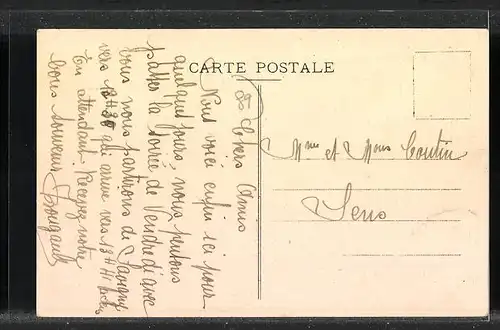 CARTE POSTALE
Chers Amis
Nous voici enfin ici pour
quelques jours, nous pensons
passer la soirée de Vendredi avec
vous nous partirons de Savigny
vers 12H30 qui arrive vers 13H
En attendant Recevez notre
bons souvenir
Mme et Mons Coutin
Sens